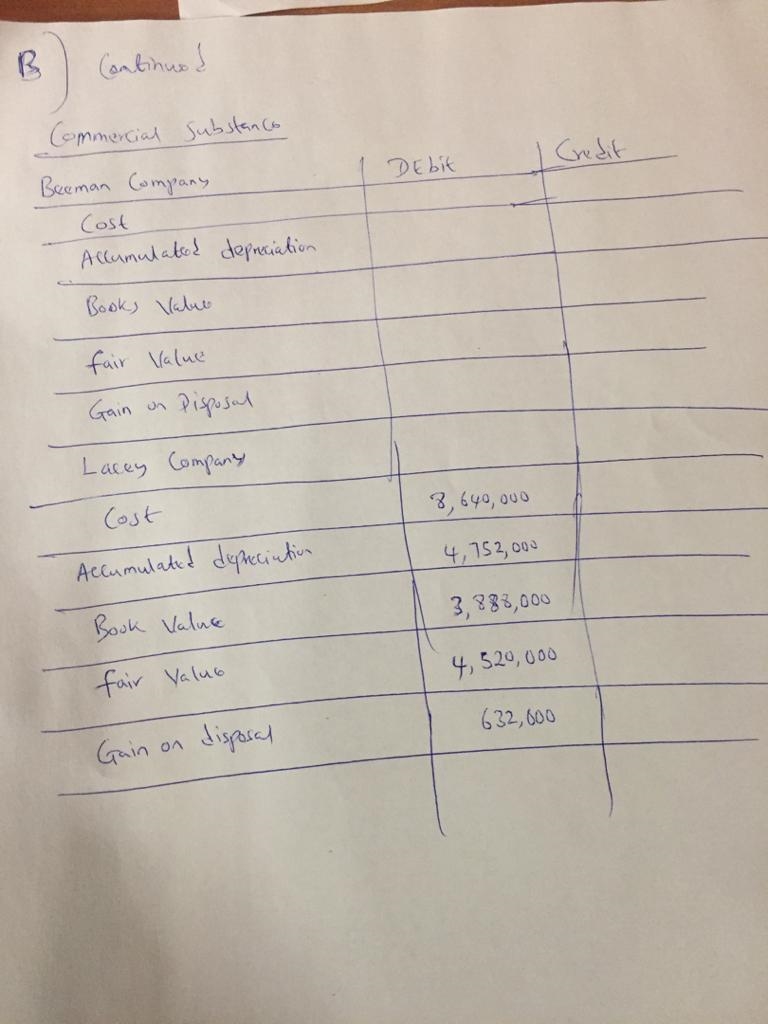 B) Continued
Commercial Substance
Beeman Company Debit Credit
Cost
Accumulated depreciation
Books Value
Fair Value
Gain on Disposal
Lacey Company
Cost 8,640,000
Accumulated depreciation 4,752,000
Book Value 3,888,000
Fair Value 4,520,000
Gain on disposal 632,000